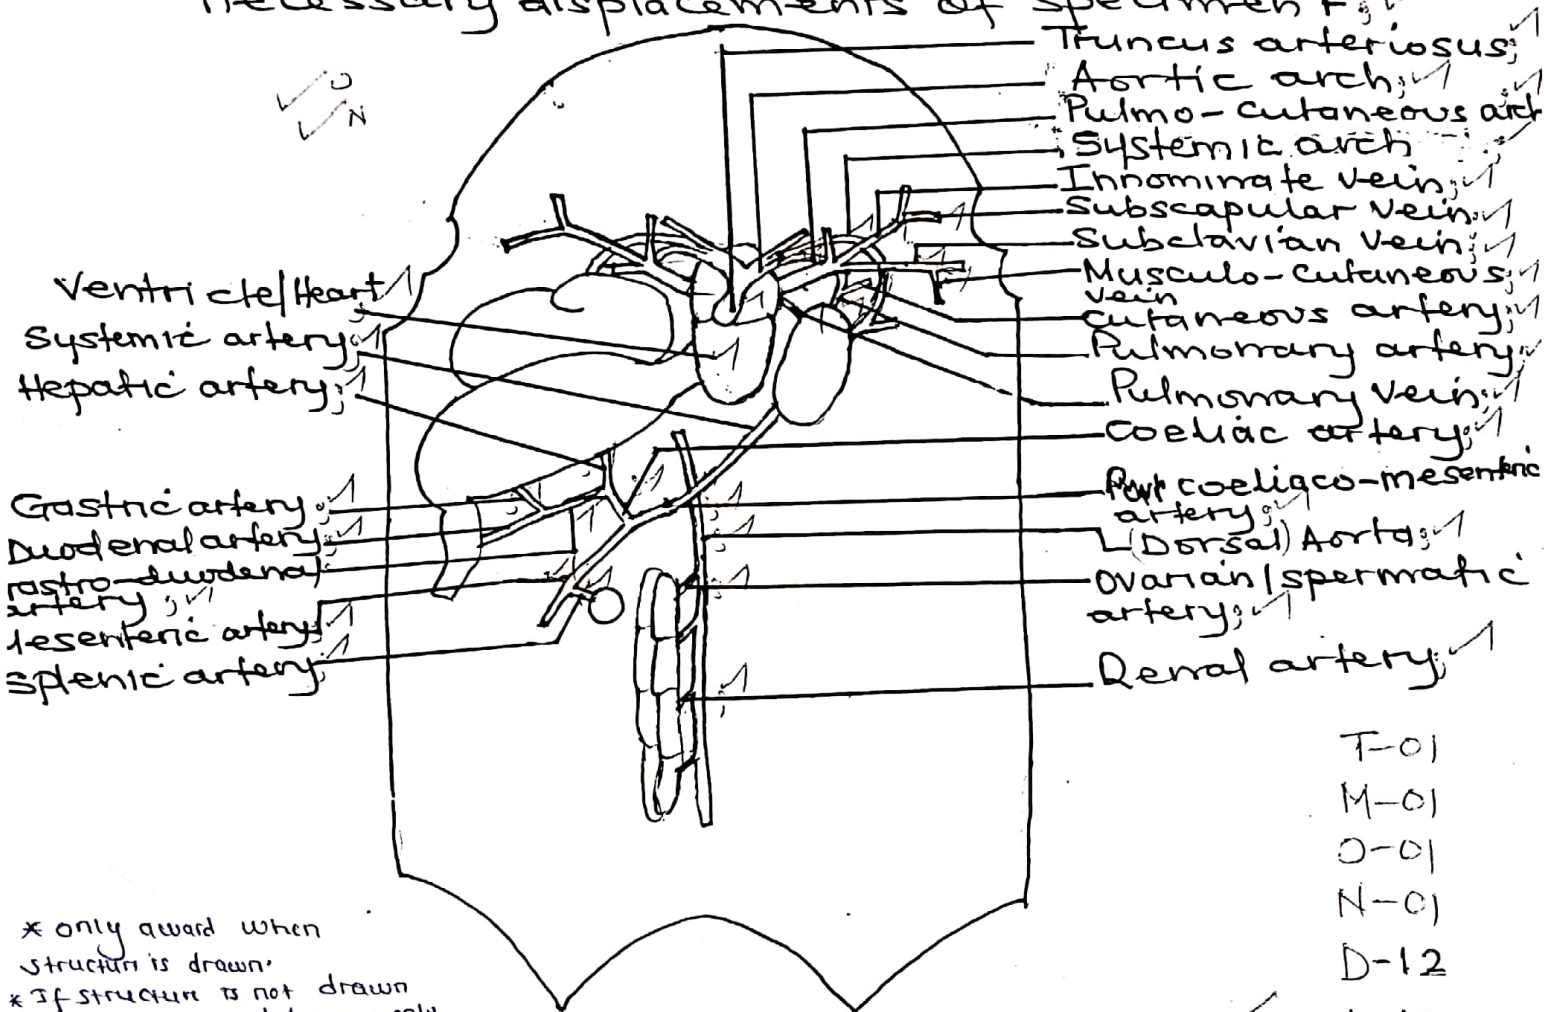 necessary displacements of specimen F;
Truncus arteriosus;
Aortic arch;
Pulmo-cutaneous arch
Systemic arch
Innominate vein;
Subscapular vein;
Subclavian vein;
Musculo-cutaneous;
vein
cutaneous artery;
Pulmonary artery
Pulmonary vein;
coeliac artery;
coeliaco-mesenteric
artery;
(Dorsal) Aorta;
Ovarian/spermatic
artery;
Renal artery;
Ventricle/Heart
Systemic artery;
Hepatic artery;
Gastric artery;
Duodenal artery;
rastro-duodenal
artery;
lesenteric artery;
Splenic artery;
O
N
T-01
M-01
O-01
N-01
D-12
* only award when
structure is drawn.
* If structure is not drawn